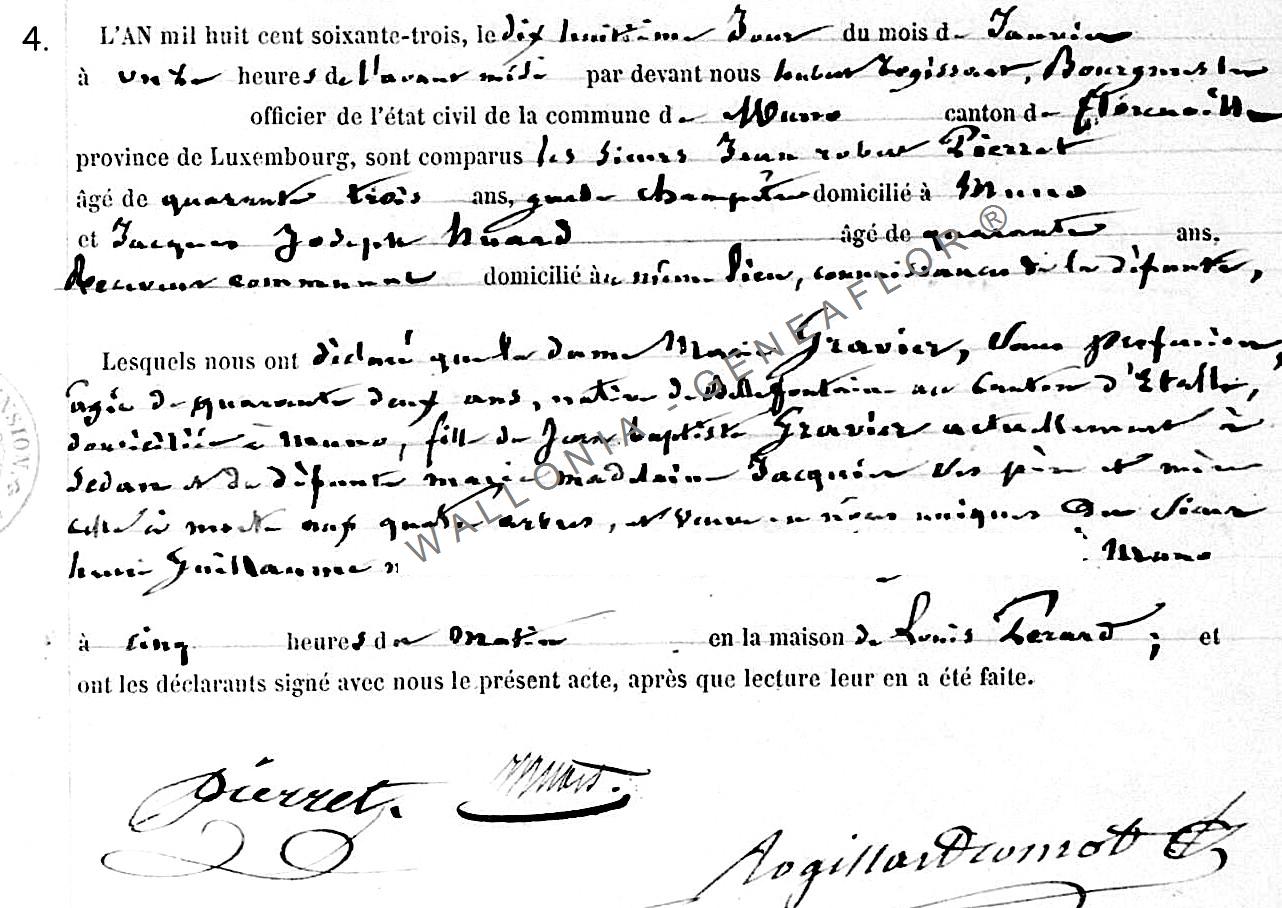 4.
L'AN mil huit cent soixante-trois, le dix huitième Jour du mois de Janvier
à onze heures de l'avant midi par devant nous hubert Rogissart, Bourgmestre
officier de l'état civil de la commune de Muno canton de Florenville
province de Luxembourg, sont comparus les sieurs Jean robert Pierret
âgé de quarante trois ans, garde champêtre domicilié à Muno
et Jacques Joseph Huard âgé de quarante ans,
Receveur communal domicilié au même lieu, connaissances de la défunte,
Lesquels nous ont déclaré que la dame Marie Gravier, Sans profession,
agée de quarante deux ans, native de Bellefontaine au Canton d'Etalle,
domiciliée à Muno, fille de Jean baptiste Gravier actuellement à
Sedan et de défunte marie madelaine Jacquin ses père et mère
est morte aux quatre arbres, et veuve en noces uniques du Sieur
henri Guillaume à Muno
à cinq heures du matin en la maison de Louis Perard ; et
ont les déclarants signé avec nous le présent acte, après que lecture leur en a été faite.
Pierret.
WALLONIA - GENEAFLOR ®